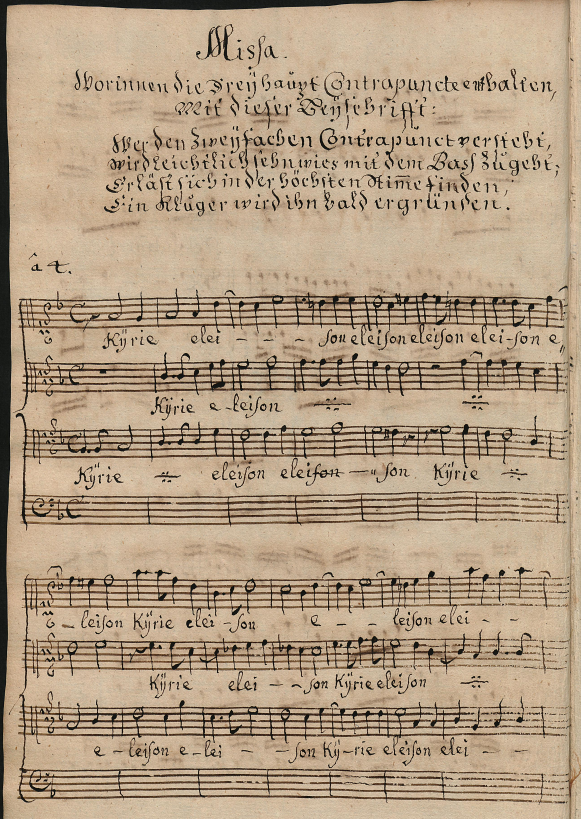 Missa.
Worinnen die Dreÿ haupt Contrapuncte enthalten,
Mit dieser Beÿschrifft:
Wer den Zweÿfachen Contrapunct versteht,
wird leichtlich sehn wies mit dem Bass zugeht,
Er läst sich in der höchsten Stim̅e finden,
Ein Kluger wird ihn bald ergründen.
â 4.
Kÿrie elei - - - son eleison eleison elei-son e
Kÿrie e-leison
Kÿrie eleison eleison - son Kÿrie
leison Kÿrie elei-son e - - leison elei - -
Kÿrie elei - - son Kÿrie eleison
e-leison e-lei - - son Kÿ-rie eleison elei - -